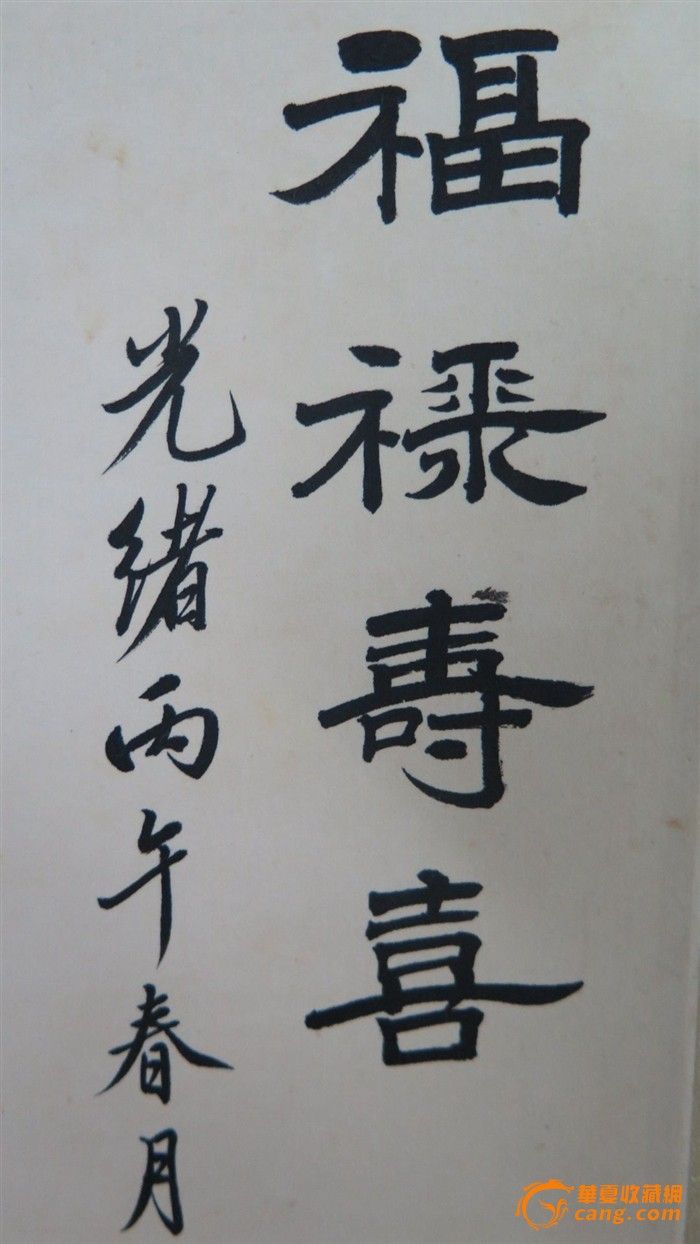 福祿壽喜
光緒丙午春月
華夏收藏網
cang.com